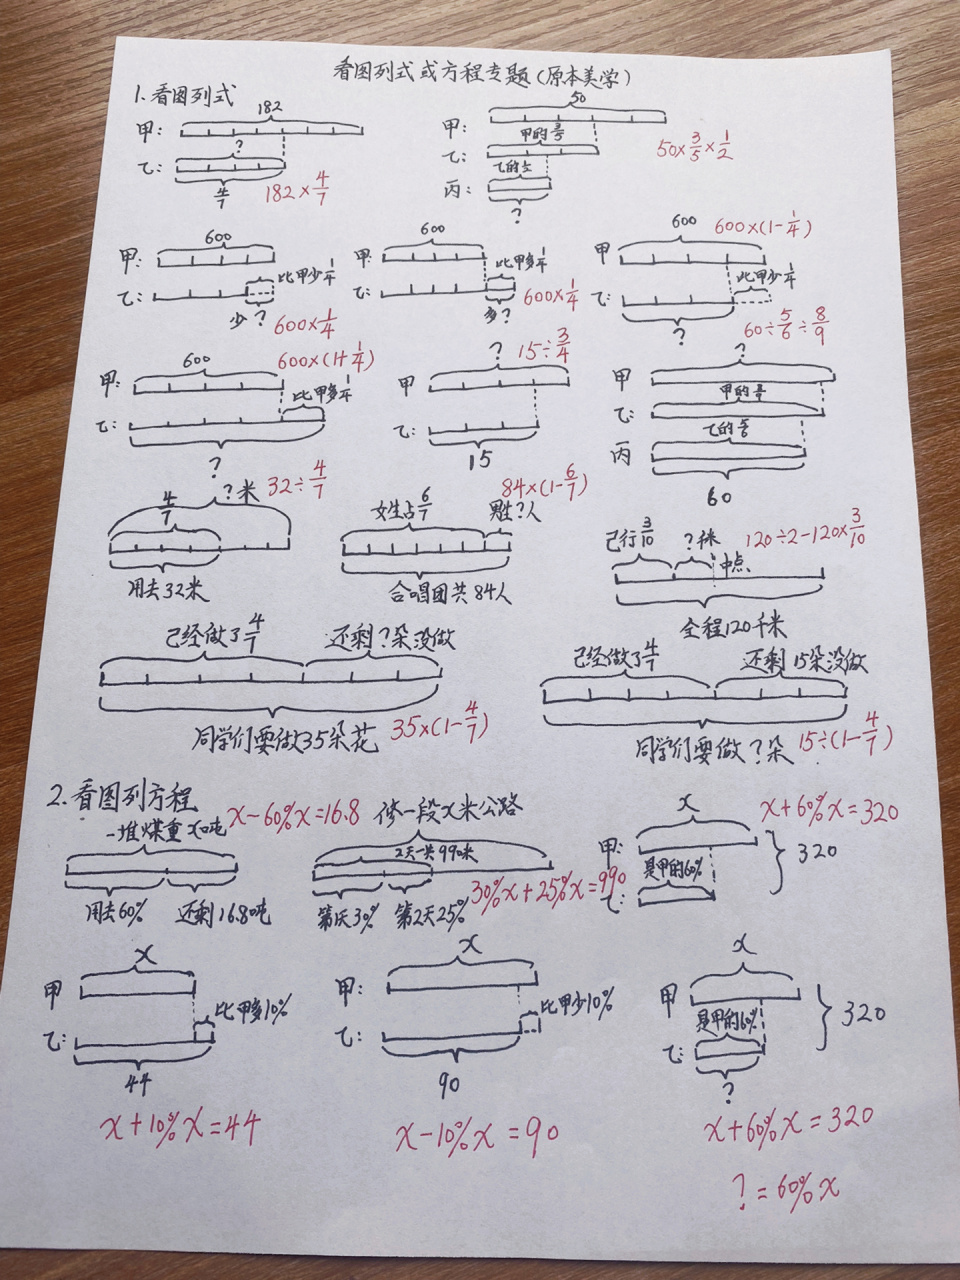 看图列式或方程专题(原本美学)
1.看图列式
182
甲:
?
乙:
4/7
182×4/7
50
甲:
甲的3/5
乙:
乙的1/2
丙:
?
50×3/5×1/2
600
甲:
比甲少1/4
乙:
少?
600×1/4
600
甲:
比甲多1/4
乙:
多?
600×1/4
600
600×(1-1/4)
甲
比甲少1/4
乙:
?
600
600×(1+1/4)
甲:
比甲多1/4
乙:
?
?
15÷3/4
甲
乙:
15
60÷5/6÷8/9
?
甲
甲的8/9
乙:
乙的5/6
丙
60
4/7
?米
32÷4/7
用去32米
女生占6/7
男生?人
84×(1-6/7)
合唱团共84人
已行3/10
?千米
中点
120÷2-120×3/10
全程120千米
已经做了4/7
还剩?朵没做
同学们要做35朵花
35×(1-4/7)
已经做了4/7
还剩15朵没做
同学们要做?朵
15÷(1-4/7)
2.看图列方程
一堆煤重x吨
x-60%x=16.8
用去60%
还剩16.8吨
修一段x米公路
2天一共990米
30%x+25%x=990
第1天30%
第2天25%
x
x+60%x=320
甲:
是甲的60%
乙:
320
x
甲
比甲多10%
乙:
44
x+10%x=44
x
甲:
比甲少10%
乙:
90
x-10%x=90
x
甲
是甲的60%
乙:
?
320
x+60%x=320
?=60%x